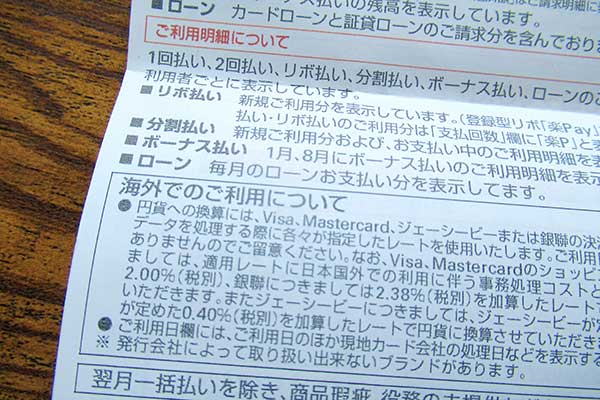 ■ ローン カードローンと証貸ローンのご請求分を含んでおりま
ご利用明細について
1回払い、2回払い、リボ払い、分割払い、ボーナス払い、ローンのご
利用者ごとに表示しています。
■ リボ払い 新規ご利用分を表示しています。(登録型リボ「楽Pay」
払い・リボ払いのご利用分は「支払回数」欄に「楽P」と表
■ 分割払い 新規ご利用分および、お支払い中のご利用明細を表
■ ボーナス払い 1月、8月にボーナス払いのご利用明細を表示
■ ローン 毎月のローンお支払い分を表示してます。
海外でのご利用について
● 円貨への換算には、Visa、Mastercard、ジェーシービーまたは銀聯の決済
データを処理する際に各々が指定したレートを使用いたします。ご利用
ありませんのでご留意ください。なお、Visa、Mastercardのショッピ
ましては、適用レートに日本国外での利用に伴う事務処理コストと
2.00%(税別)、銀聯につきましては2.38%(税別)を加算したレート
いただきます。またジェーシービーにつきましては、ジェーシービーが
が定めた0.40%(税別)を加算したレートで円貨に換算させていただきま
● ご利用日欄には、ご利用日のほか現地カード会社の処理日などを表示する
※ 発行会社によって取り扱い出来ないブランドがあります。
翌月一括払いを除き、商品瑕疵、役務の